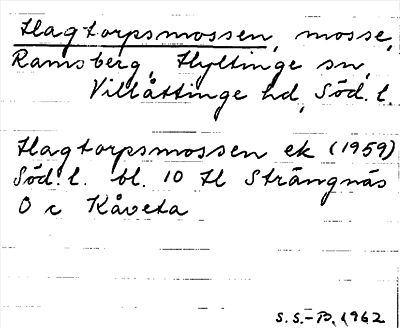 Hagtorpsmossen, mosse,
Ramsberg, Hyltinge sn,
Villåttinge hd, Söd. l.
Hagtorpsmossen ek (1959)
Söd. l. bl. 10 H Strängnäs
O c Kåveta
S.S.-B. 1962